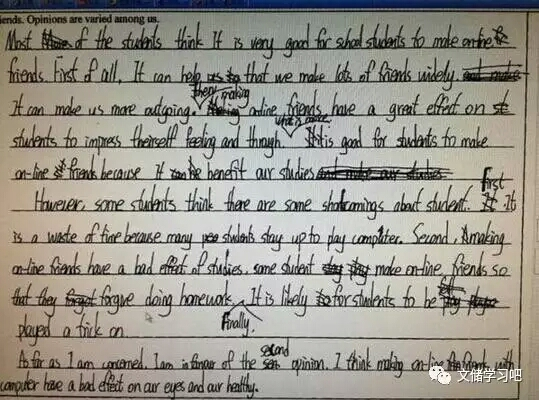 iends. Opinions are varied among us.
Most of the students think It is very good for school students to make on-line
friends. First of all, It can help that we make lots of friends widely.
It can make us more outgoing. then, making on-line friends have a great effect on
students to impress theirself feeling and through. what's more It is good for students to make
on-line friends because It benefit our studies
However, some students think there are some shortcomings about student. first It
is a waste of time because many students stay up to play computer. Second, making
on-line friends have a bad effect of studies, some student make on-line friends so
that they forgive doing homework. It is likely for students to be
Finally.
played a trick on
As far as I am concerned. I am in favour of the second opinion. I think making on-line friends with
computer have a bad effect on our eyes and our healthy.
文储学习吧